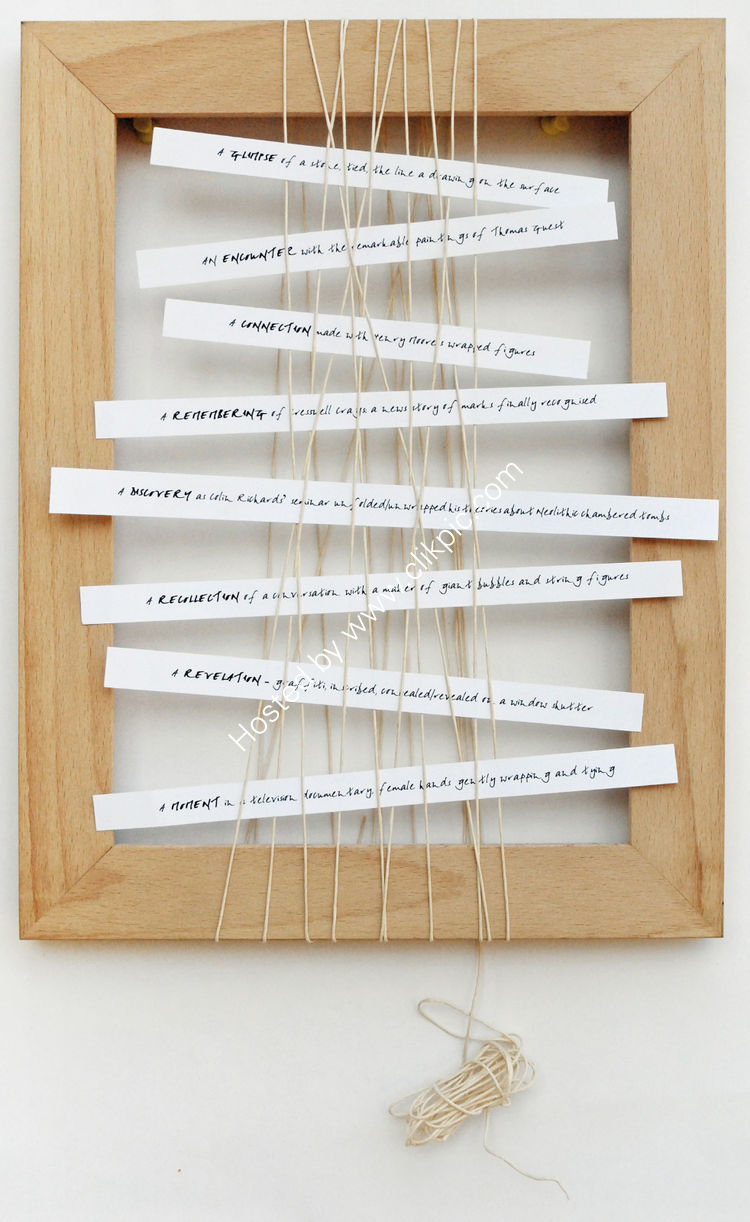 A GLIMPSE of a stone, tied, the line a drawing on the surface
AN ENCOUNTER with the remarkable paintings of Thomas Guest
A CONNECTION made with Henry Moore's wrapped figures
A REMEMBERING of Cresswell Crags: a news story of marks finally recognised
A DISCOVERY as Colin Richards' seminar unfolded/unwrapped his theories about Neolithic chambered tombs
A RECOLLECTION of a conversation with a maker of giant bubbles and string figures
A REVELATION - graffiti, inscribed, concealed/revealed on a window shutter
A MOMENT in a television documentary: female hands gently wrapping and tying
Hosted by www.clikpic.com